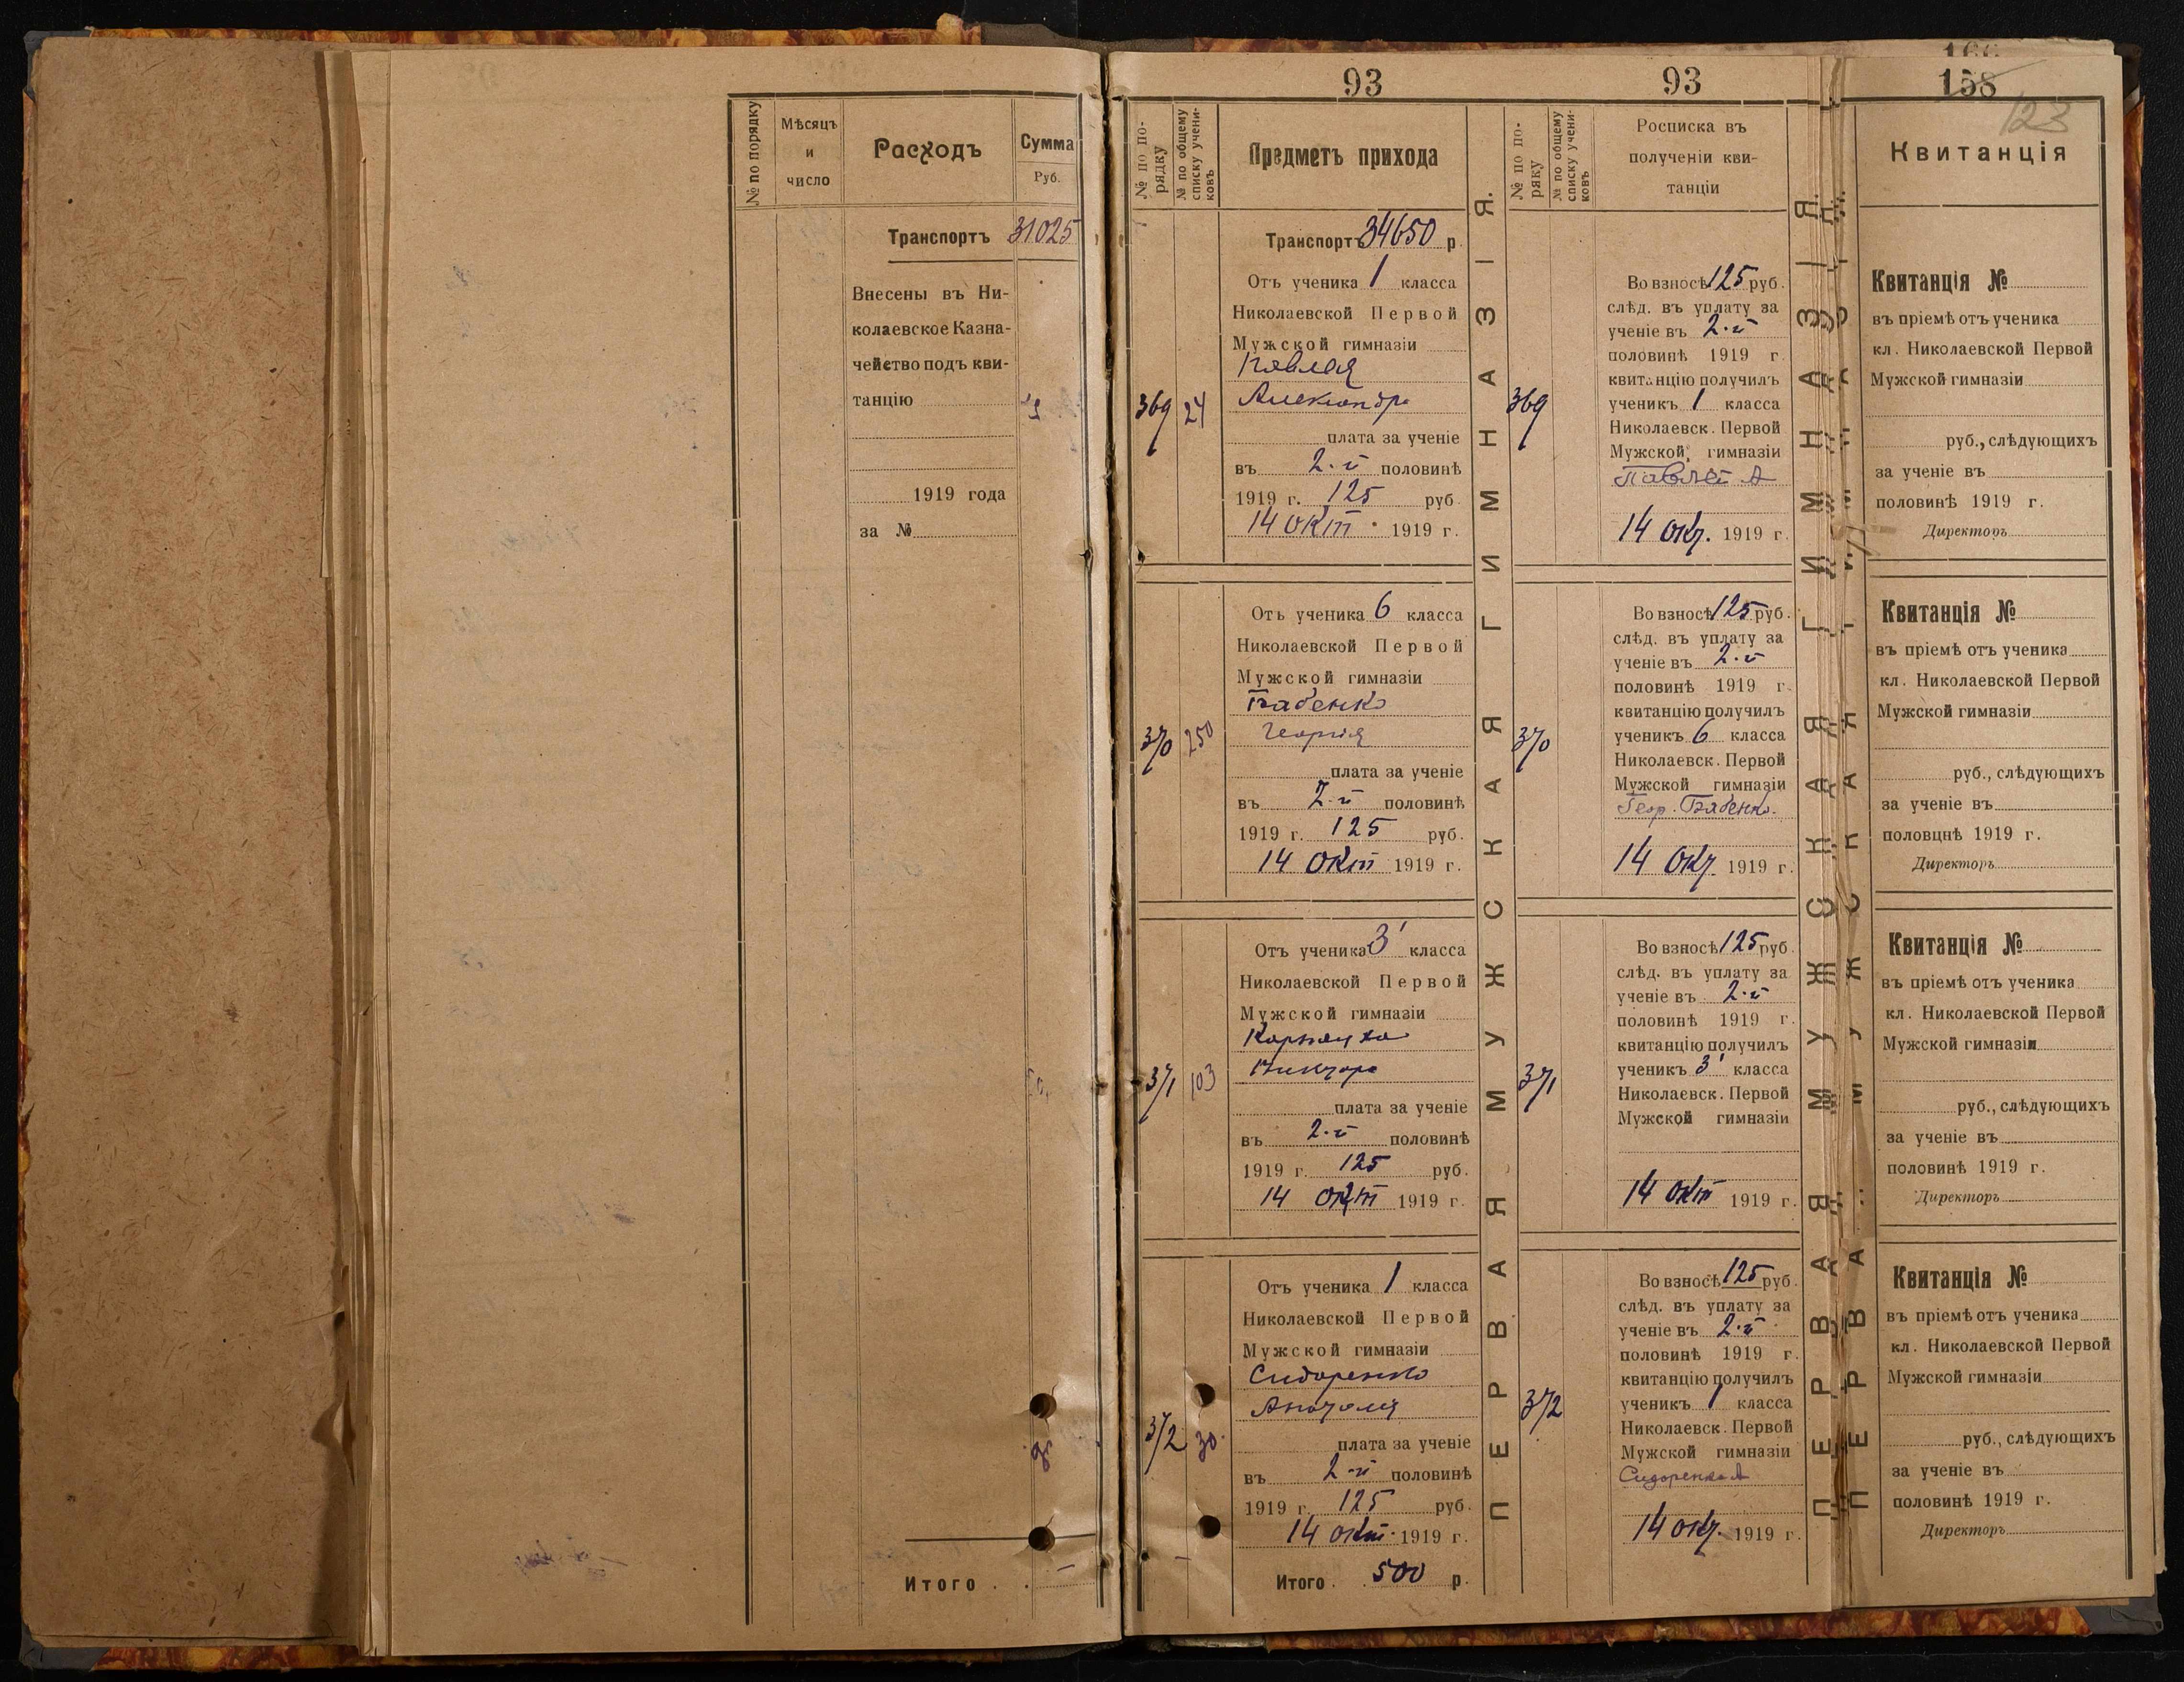 № по порядку
Мѣсяцъ
и
число
Расходъ
Сумма
Руб.
Транспортъ 31025
Внесены въ Ни-
колаевское Казна-
чейство подъ кви-
танцію
1919 года
за №
Итого .
93
№ по по-
рядку
№ по общему
списку учени-
ковъ
Предметъ прихода
Транспортъ 34650 р.
369 24
Отъ ученика 1 класса
Николаевской Первой
Мужской гимназіи
Павлея
Александра
плата за ученіе
въ 2-й половинѣ
1919 г. 125 руб.
14 окт. 1919 г.
370 250
Отъ ученика 6 класса
Николаевской Первой
Мужской гимназіи
Бабенко
Георгія
плата за ученіе
въ 2-й половинѣ
1919 г. 125 руб.
14 окт 1919 г.
371 103
Отъ ученика 3 класса
Николаевской Первой
Мужской гимназіи
Виктора
плата за ученіе
въ 2-й половинѣ
1919 г. 125 руб.
14 окт 1919 г.
372 30.
Отъ ученика 1 класса
Николаевской Первой
Мужской гимназіи
Сидоренко
Анатолія
плата за ученіе
въ 2-й половинѣ
1919 г. 125 руб.
14 окт. 1919 г.
Итого . 500 р.
ПЕРВАЯ МУЖСКАЯ ГИМНАЗІЯ.
93
№ по по-
ряку
№ по общему
списку учени-
ковъ
Росписка въ
полученіи кви-
танціи
369
Во взносѣ 125 руб.
слѣд. въ уплату за
ученіе въ 2-й
половинѣ 1919 г.
квитанцію получилъ
ученикъ 1 класса
Николаевск. Первой
Мужской гимназіи
Павлей А
14 окт. 1919 г.
370
Во взносѣ 125 руб.
слѣд. въ уплату за
ученіе въ 2-й
половинѣ 1919 г.
квитанцію получилъ
ученикъ 6 класса
Николаевск. Первой
Мужской гимназіи
Геор. Бабенко.
14 окт. 1919 г.
371
Во взносѣ 125 руб.
слѣд. въ уплату за
ученіе въ 2-й
половинѣ 1919 г.
квитанцію получилъ
ученикъ 3 класса
Николаевск. Первой
Мужской гимназіи
14 окт 1919 г.
372
Во взносѣ 125 руб.
слѣд. въ уплату за
ученіе въ 2-й
половинѣ 1919 г.
квитанцію получилъ
ученикъ 1 класса
Николаевск. Первой
Мужской гимназіи
Сидоренко А
14 окт. 1919 г.
ПЕРВАЯ МУЖСКАЯ ГИМНАЗІЯ.
158
123
Квитанція
Квитанція №
въ пріемѣ отъ ученика
кл. Николаевской Первой
Мужской гимназіи
руб., слѣдующихъ
за ученіе въ
половинѣ 1919 г.
Директоръ
Квитанція №
въ пріемѣ отъ ученика
кл. Николаевской Первой
Мужской гимназіи
руб., слѣдующихъ
за ученіе въ
половцнѣ 1919 г.
Директоръ
Квитанція №
въ пріемѣ отъ ученика
кл. Николаевской Первой
Мужской гимназіи
руб., слѣдующихъ
за ученіе въ
половинѣ 1919 г.
Директоръ
Квитанція №
въ пріемѣ отъ ученика
кл. Николаевской Первой
Мужской гимназіи
руб., слѣдующихъ
за ученіе въ
половинѣ 1919 г.
Директоръ